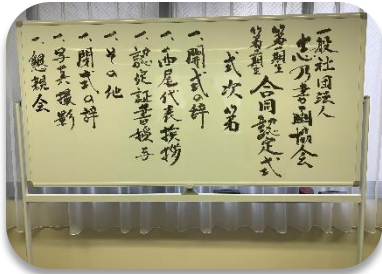 一般社団法人
忠乃書画協会
第一期生
第二期生
合同認定式
式次第
一、開式の辞
一、西尾代表挨拶
一、認定証書授与
一、その他
一、閉式の辞
一、写真撮影
一、懇親会